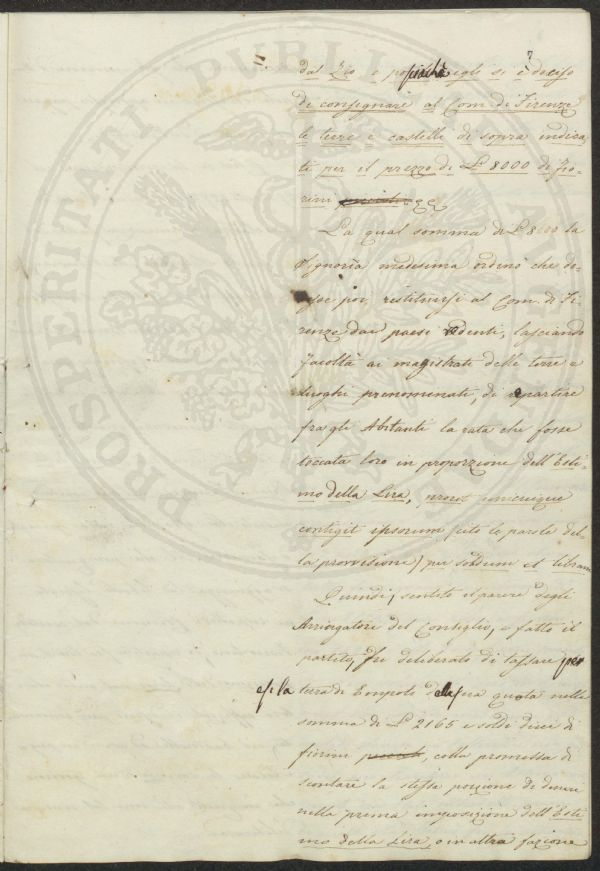 7
dal Zio e poichè egli si è deciso
di consegnare al Com. di Firenze
le terre e castelli di sopra indica-
ti per il prezzo di L. 8000 di fio-
rini
La qual somma di L. 8000 la
Signorìa medesima ordinò che do-
vesse poi restituirsi al Com. di Fi-
renze dai paesi redenti, lasciando
facoltà ai magistrati delle terre e
luoghi prenominati, di repartire
fra gli Abitanti la rata che fosse
toccata loro in proporzione dell'Esti-
mo della Lira, prout unicuique
contigit ipsorum (cito le parole del-
la provvisione) per soldum et libram
Quindi, sentito il parere degli
Arringatori del Consiglio, e fatto il
partito, fu deliberato di tassare per
terra di Empoli della sua quota nella
somma di L. 2165 e soldi dieci di
fiorini, colla promessa di
scontare la stessa porzione di denaro
nella prima imposizione dell'Esti-
mo della Lira, o in altra fazione
PROSPERITATI PUBLICAE AUG